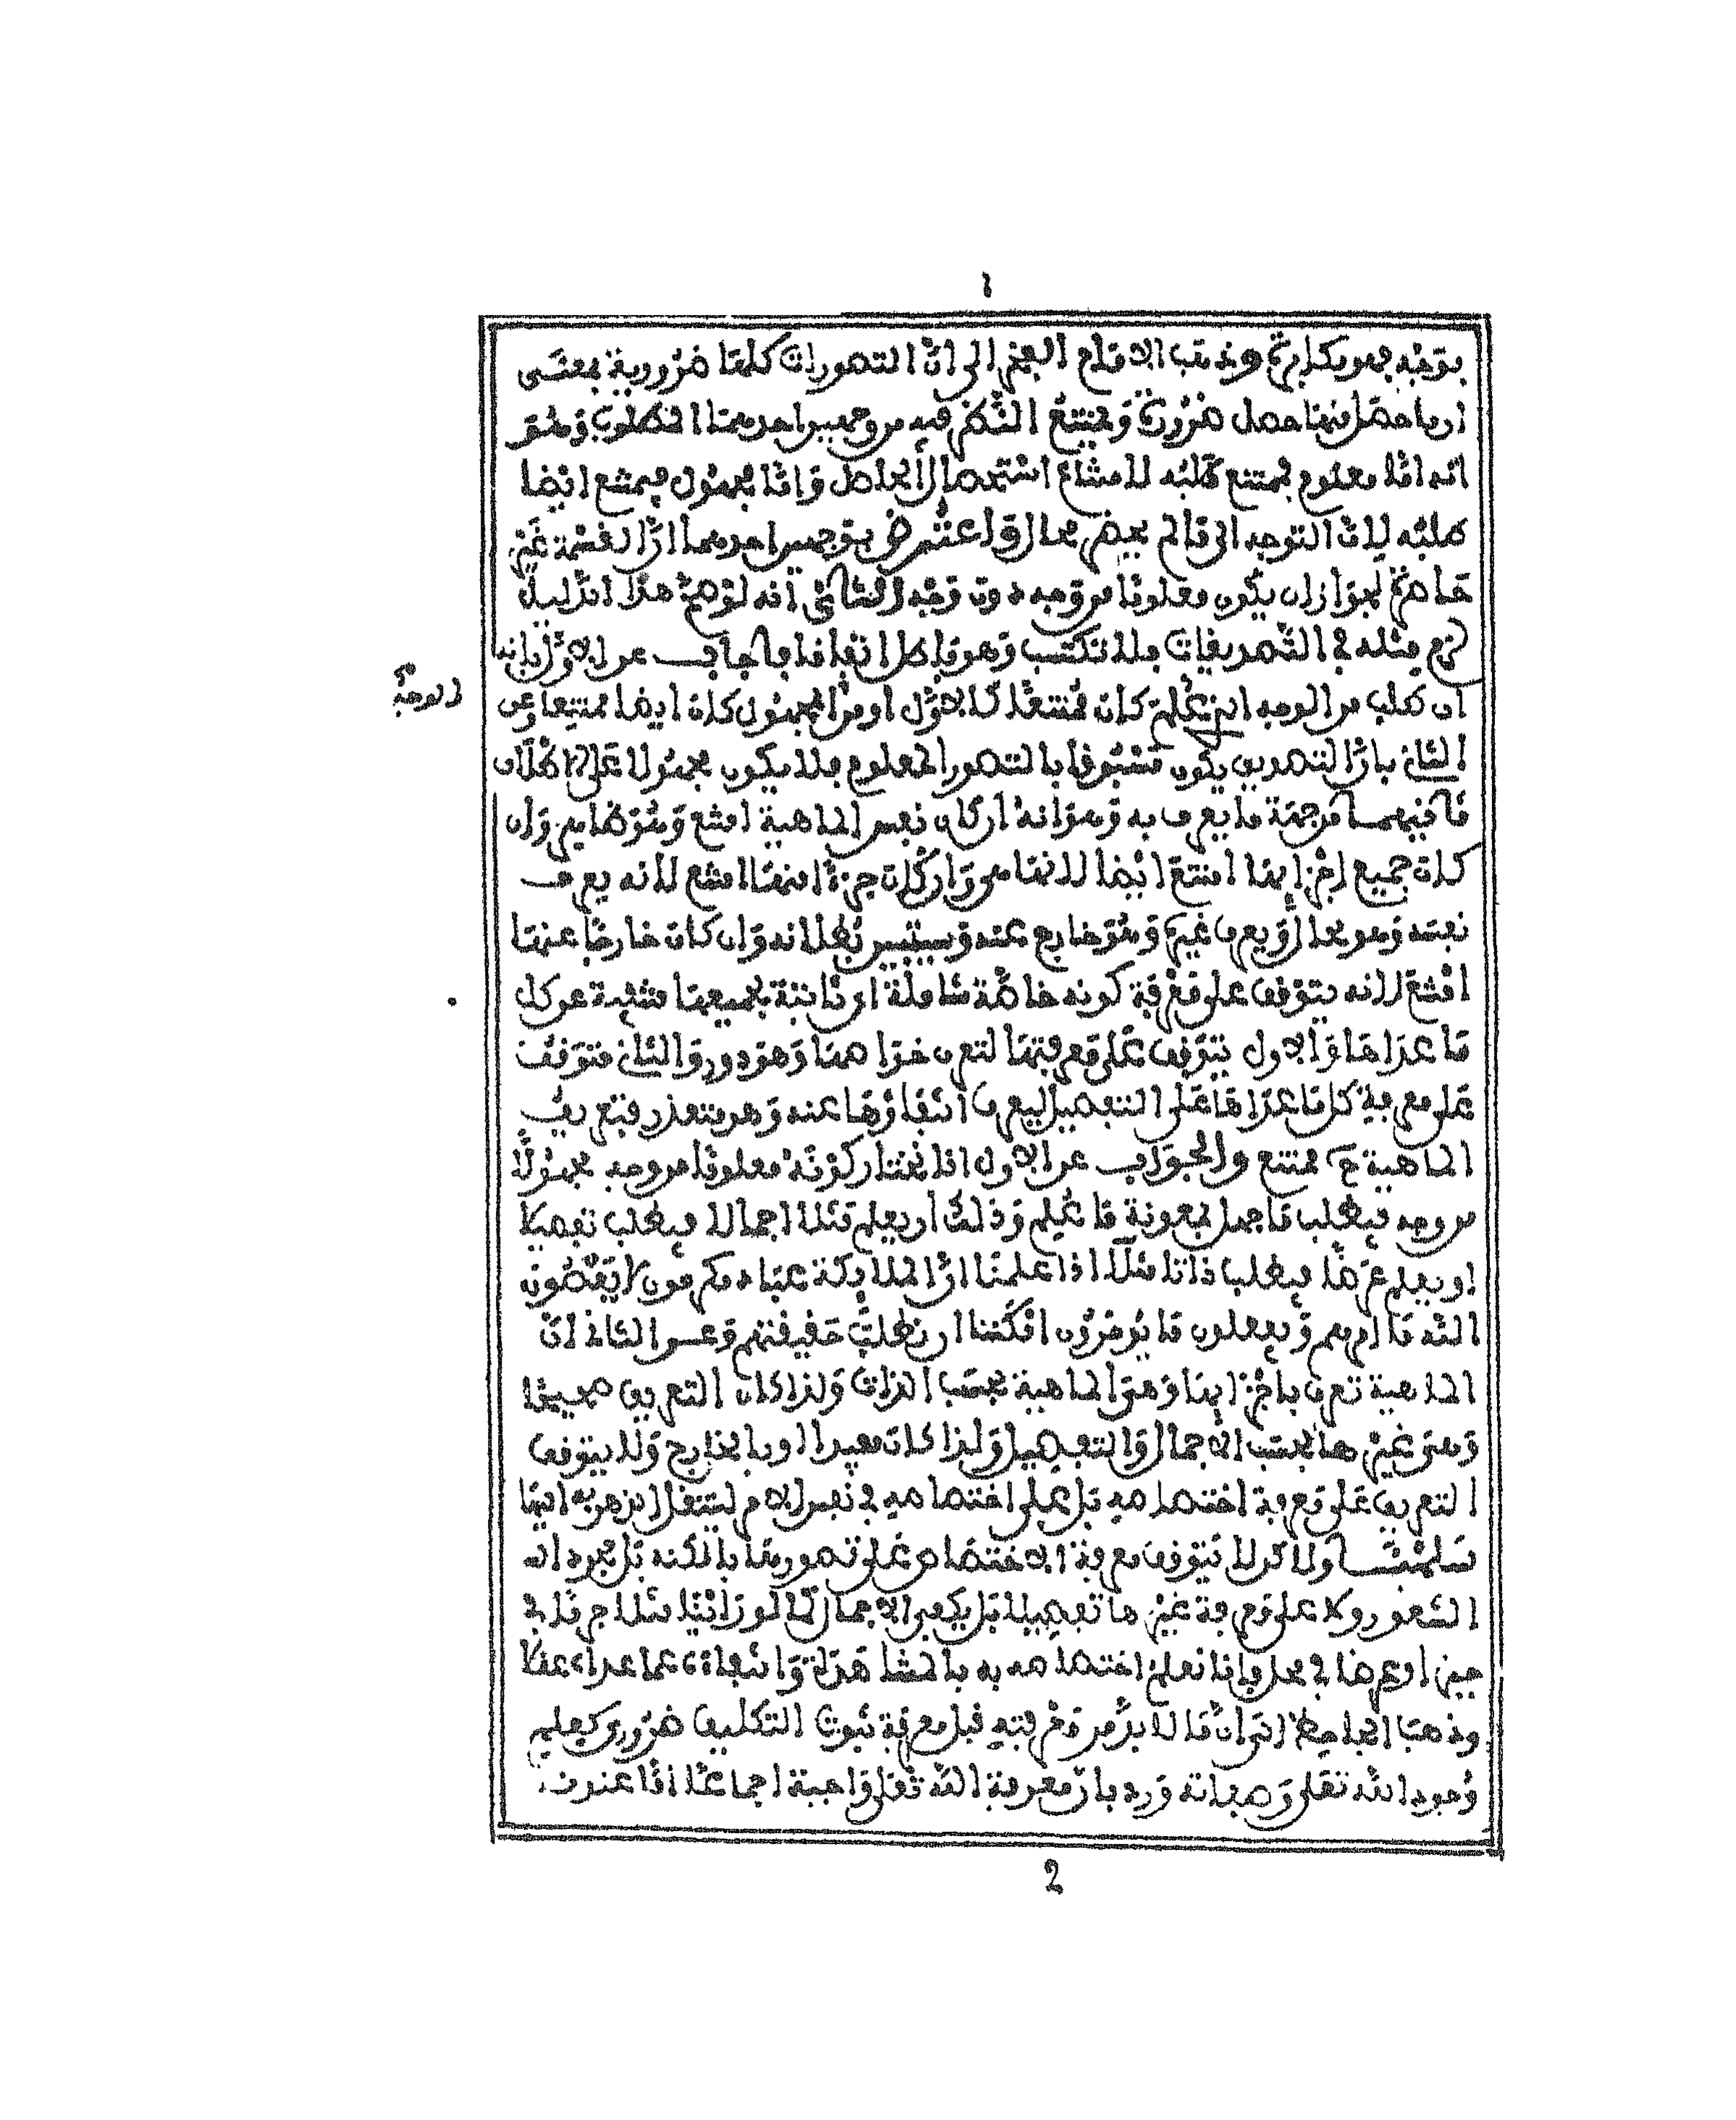 ١
بتوجه فهو بكلام ثم وذهب الامام الفخر الى ان التصورات كلها ضرورية بمعنى
ان ما حصل منها حصل ضرورة ويمتنع النظر فيه من وجهين احدهما المطلوب وهو
انه اما معلوم فيمتنع طلبه لامتناع استحصال الحاصل واما مجهول فيمتنع ايضا
طلبه لان التوجه الى ما لم يحضر محال واعترض بتوجهين احدهما ان القسمة غير
حاصرة لجواز ان يكون معلوما من وجه دون وجه والثاني انه لو صح هذا الدليل
لزم مثله في التصديقات فلا تكتسب وهو باطل اتفاقا فاجاب عن الاول بانه
ان طلب من الوجه الذي علم كان ممتنعا كالاول او من المجهول كان ايضا ممتنعا وعن
الوجه
الثاني بان التصديق يكون مسبوقا بالتصور المعلوم فلا يكون مجهولا على الاطلاق
ثانيهما من جهة ما يعرف به وهو انه ان كان نفس الماهية امتنع وهو ظاهر وان
كان جميع اجزايها امتنع ايضا لانها هي وان كان جزءا منها امتنع لانه يعرف
نفسه وهو محال ويعرف غيره وهو خارج عنه وسيتبين بطلانه وان كان خارجا عنها
امتنع لانه يتوقف على معرفة كونه خاصة شاملة اي ثابتة لجميعها منتفية عن كل
ما عداها والاول يتوقف على معرفتها لتعرف خواصها وهو دور والثاني متوقف
على معرفة كل ما عداها على التفصيل ليعرف انتفاؤها عنه وهو متعذر فتعريف
الماهية ح ممتنع والجواب عن الاول انا نختار كونه معلوما من وجه مجهولا
من وجه فيطلب ما جهل بمعونة ما علم وذلك ان يعلم مثلا اجمالا فيطلب تفصيلا
او يعلم عرضا فيطلب ذاتا مثلا اذا علمنا ان الملايكة عباد مكرمون لا يعصون
الله ما امرهم ويفعلون ما يومرون امكننا ان نطلب حقيقتهم وعن الثاني ان
الماهية تعرف باجزايها وهي الماهية بحسب الذات ولذا كان التعريف صحيحا
وهي غيرها بحسب الاجمال والتفصيل ولذا كان مفيدا او بالخارج ولا يتوقف
التعريف على معرفة اختصاصه بل على اختصاصه في نفس الامر لينتقل الذهن به اليها
سلمنا ولاكن لا يتوقف معرفة الاختصاص على تصورها بالكنه بل بمجرد
الشعور ولا على معرفة غيرها تفصيلا بل يكفي الاجمال كما لو راينا مثلا جرما في
حيز او عرضا في محل فانا نعلم اختصاصه به بالمشاهدة وانتفاءه عما عداه عقلا
وذهب الجاحظ الى ان ما لا بد من معرفته قبل معرفة ثبوت التكليف ضروري كعلم
وجود الله تعلى وصفاته ورد بان معرفة الله تعلى واجبة اجماعا اما عندنا
2